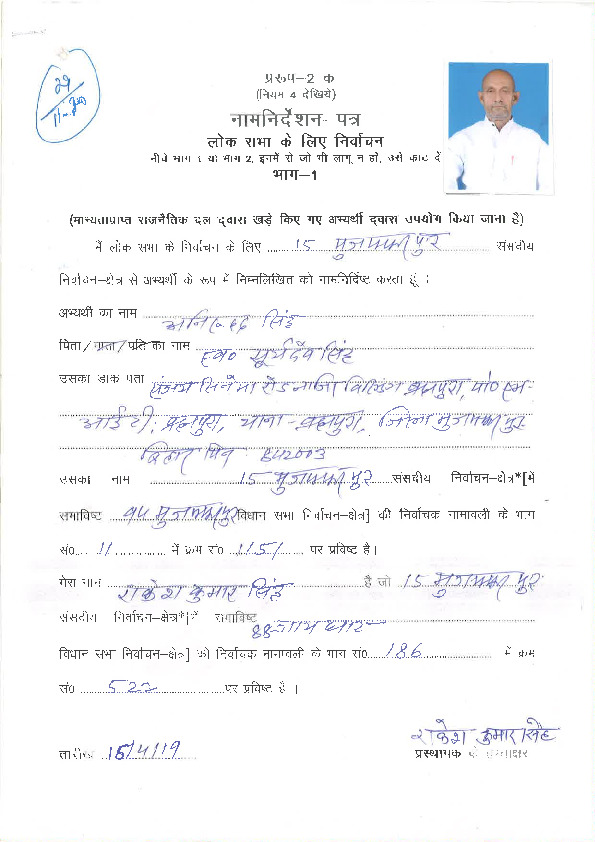 29
प्ररूप–2 क
(नियम 4 देखिये)
नामनिर्देशन- पत्र
लोक सभा के लिए निर्वाचन
नीचे भाग 1 या भाग 2, इनमें से जो भी लागू न हो, उसे काट दें
भाग–1
(मान्यताप्राप्त राजनैतिक दल द्वारा खड़े किए गए अभ्यर्थी द्वारा उपयोग किया जाना है)
मैं लोक सभा के निर्वाचन के लिए 15 मुजफ्फरपुर संसदीय
निर्वाचन–क्षेत्र से अभ्यर्थी के रूप में निम्नलिखित को नामनिर्दिष्ट करता हूं :
अभ्यर्थी का नाम अनिरुद्ध सिंह
पिता/माता/पति का नाम स्व० सूर्यदेव सिंह
उसका डाक पता सिनेमा रोड बिल्डिंग ब्रह्मपुरा, पो० एम-
आई टी, ब्रह्मपुरा, थाना- ब्रह्मपुरा, जिला मुजफ्फरपुर
बिहार पिन 842003
उसका नाम 15 मुजफ्फरपुर संसदीय निर्वाचन–क्षेत्र*[में
समाविष्ट 94 मुजफ्फरपुर विधान सभा निर्वाचन–क्षेत्र] की निर्वाचक नामावली के भाग
सं० 11 में क्रम सं० 1151 पर प्रविष्ट है।
मेरा नाम राकेश कुमार सिंह है जो 15 मुजफ्फरपुर
संसदीय निर्वाचन–क्षेत्र*[में समाविष्ट 88 गायघाट
विधान सभा निर्वाचन–क्षेत्र] की निर्वाचक नामावली के भाग सं० 186 में क्रम
सं० 522 पर प्रविष्ट है ।
तारीख 15/4/19
राकेश कुमार सिंह
प्रस्थापक के हस्ताक्षर